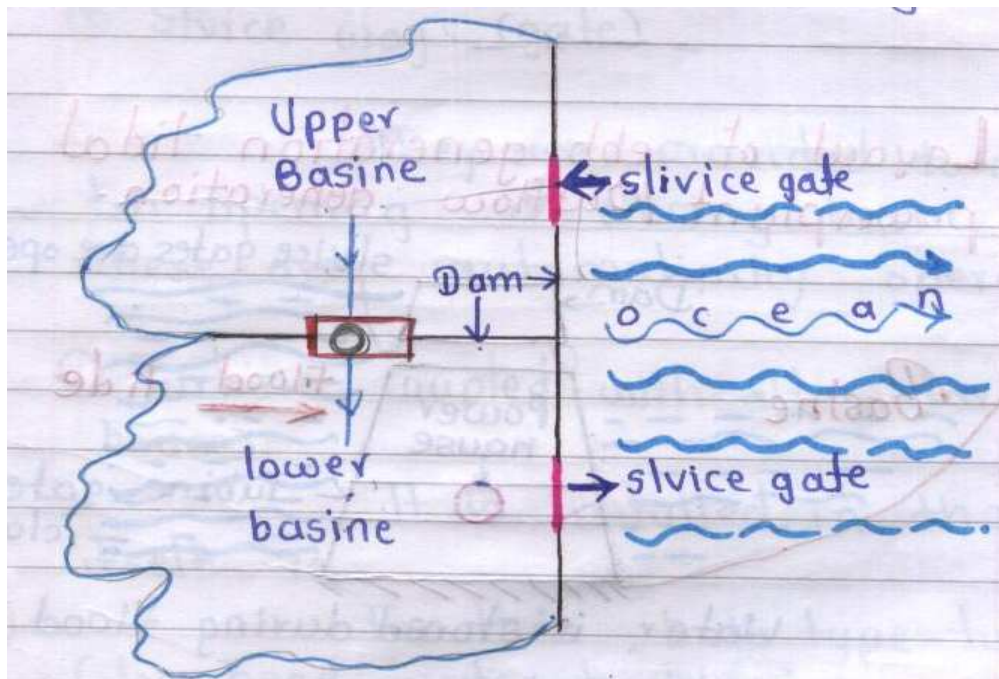 Upper
Basine
slivice gate
Dam
ocean
lower
basine
slvice gate